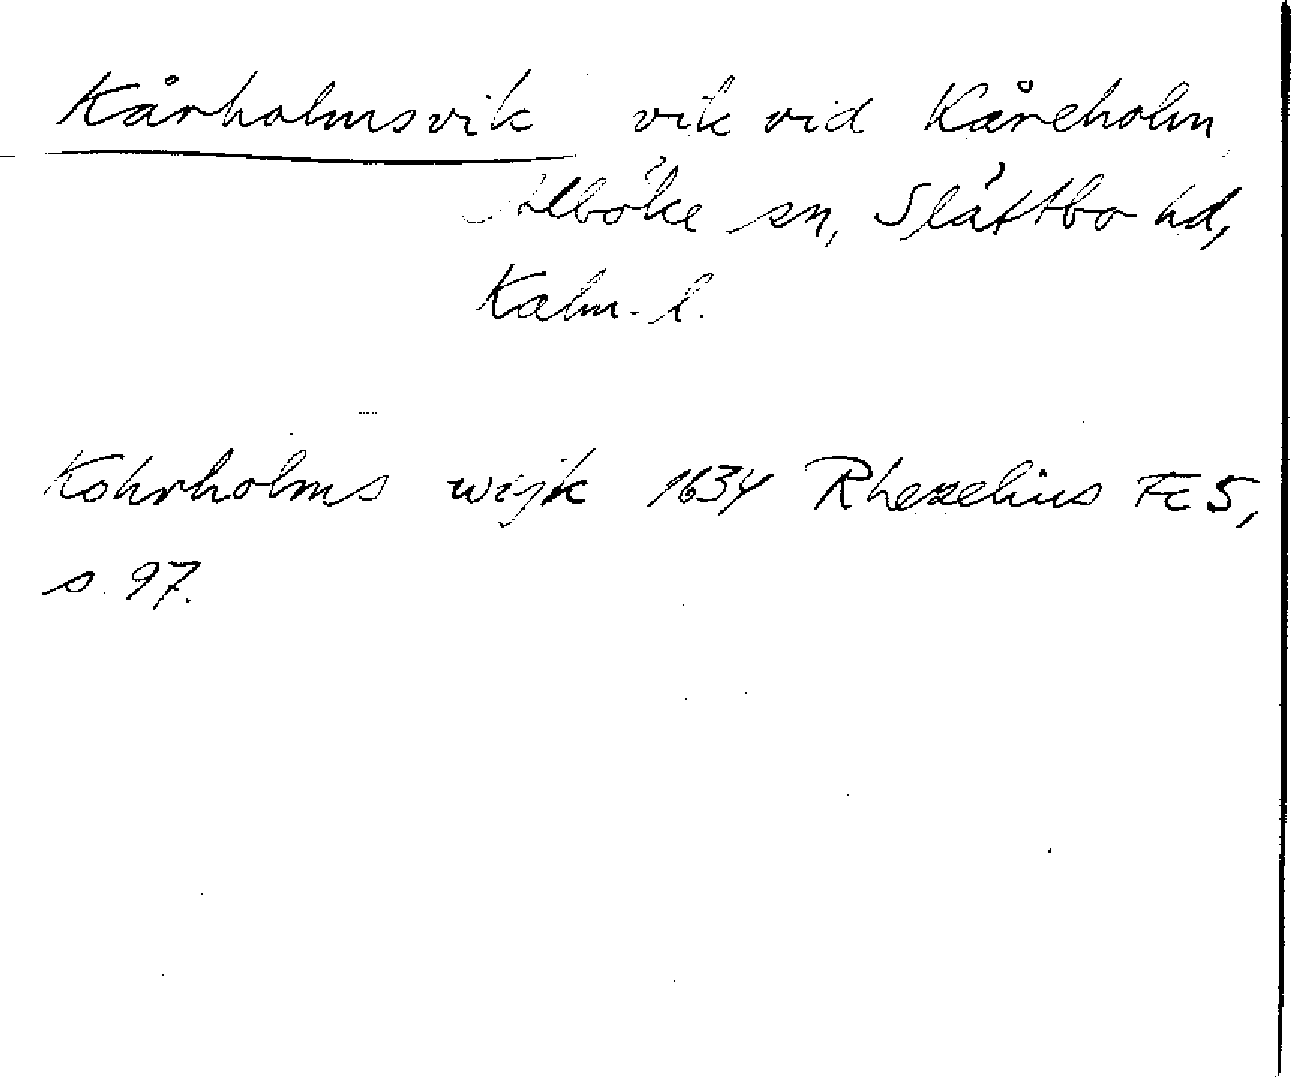 Kårholmsvik vik vid Kåreholm,
Alböke sn, Slättbo hd,
Kalm. l.
Kohrholms wijk 1634 Rhezelius Fc 5,
s. 97.